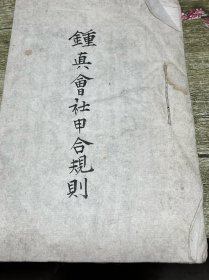 鍾真會社甲合規則